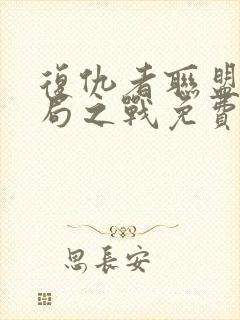 復仇者聯盟
局之戰免費
思長安